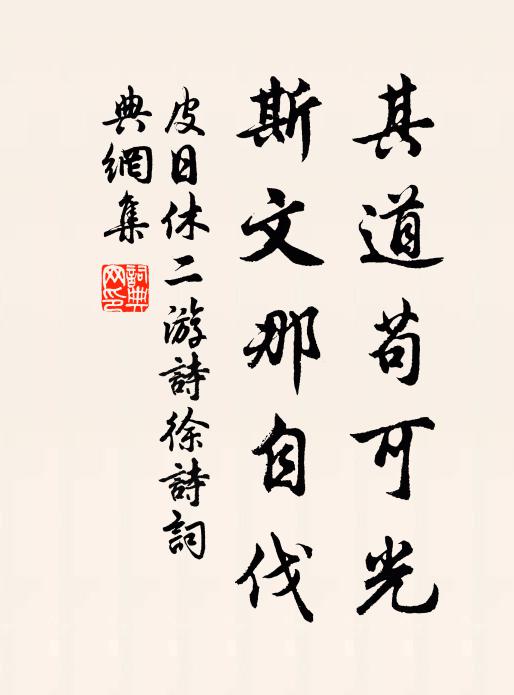 其道苟可光
斯文那自伐
皮日休二游詩徐詩詞
典網集
詞典网印